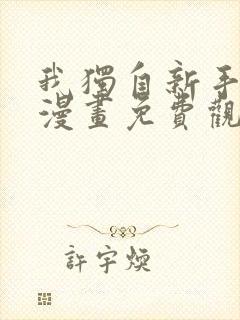 我獨自新手
漫畫免費觀
許宇煥